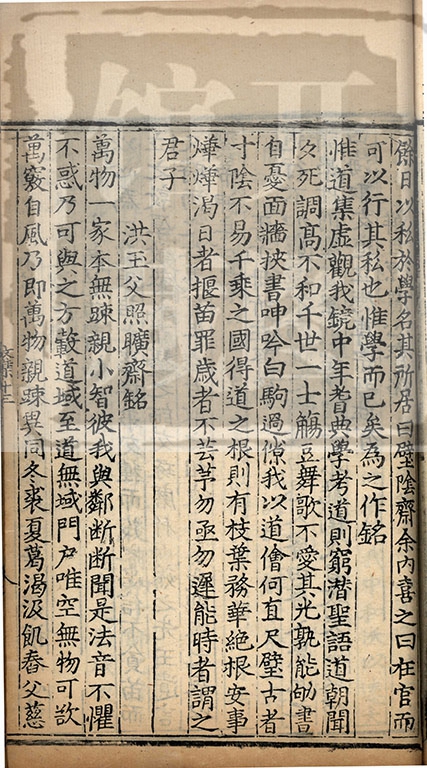 餘日以私於學名其所居曰璧陰齋余内喜之曰在官而
可以行其私也惟學而已矣為之作銘
惟道集虛觀我鏡中年耆典學考道則窮潜聖語道朝聞
夕死調高不和千世一士觴豆舞歌不愛其光孰能劬書
自憂面牆挾書呻吟白駒過隙我以道儈何直尺璧古者
寸陰不易千乘之國得道之根則有枝葉務華絶根安事
燁燁渴日者揠苗罪歲者不芸芓勿亟勿遲能時者謂之
君子
洪玉父照曠齋銘
萬物一家本無踈親小智彼我與鄰斷斷聞是法音不懼
不惑乃可與之方轂道域至道無域門户唯空無物可欬
萬竅自風乃即萬物親踈異同冬裘夏葛渴汲飢舂父慈